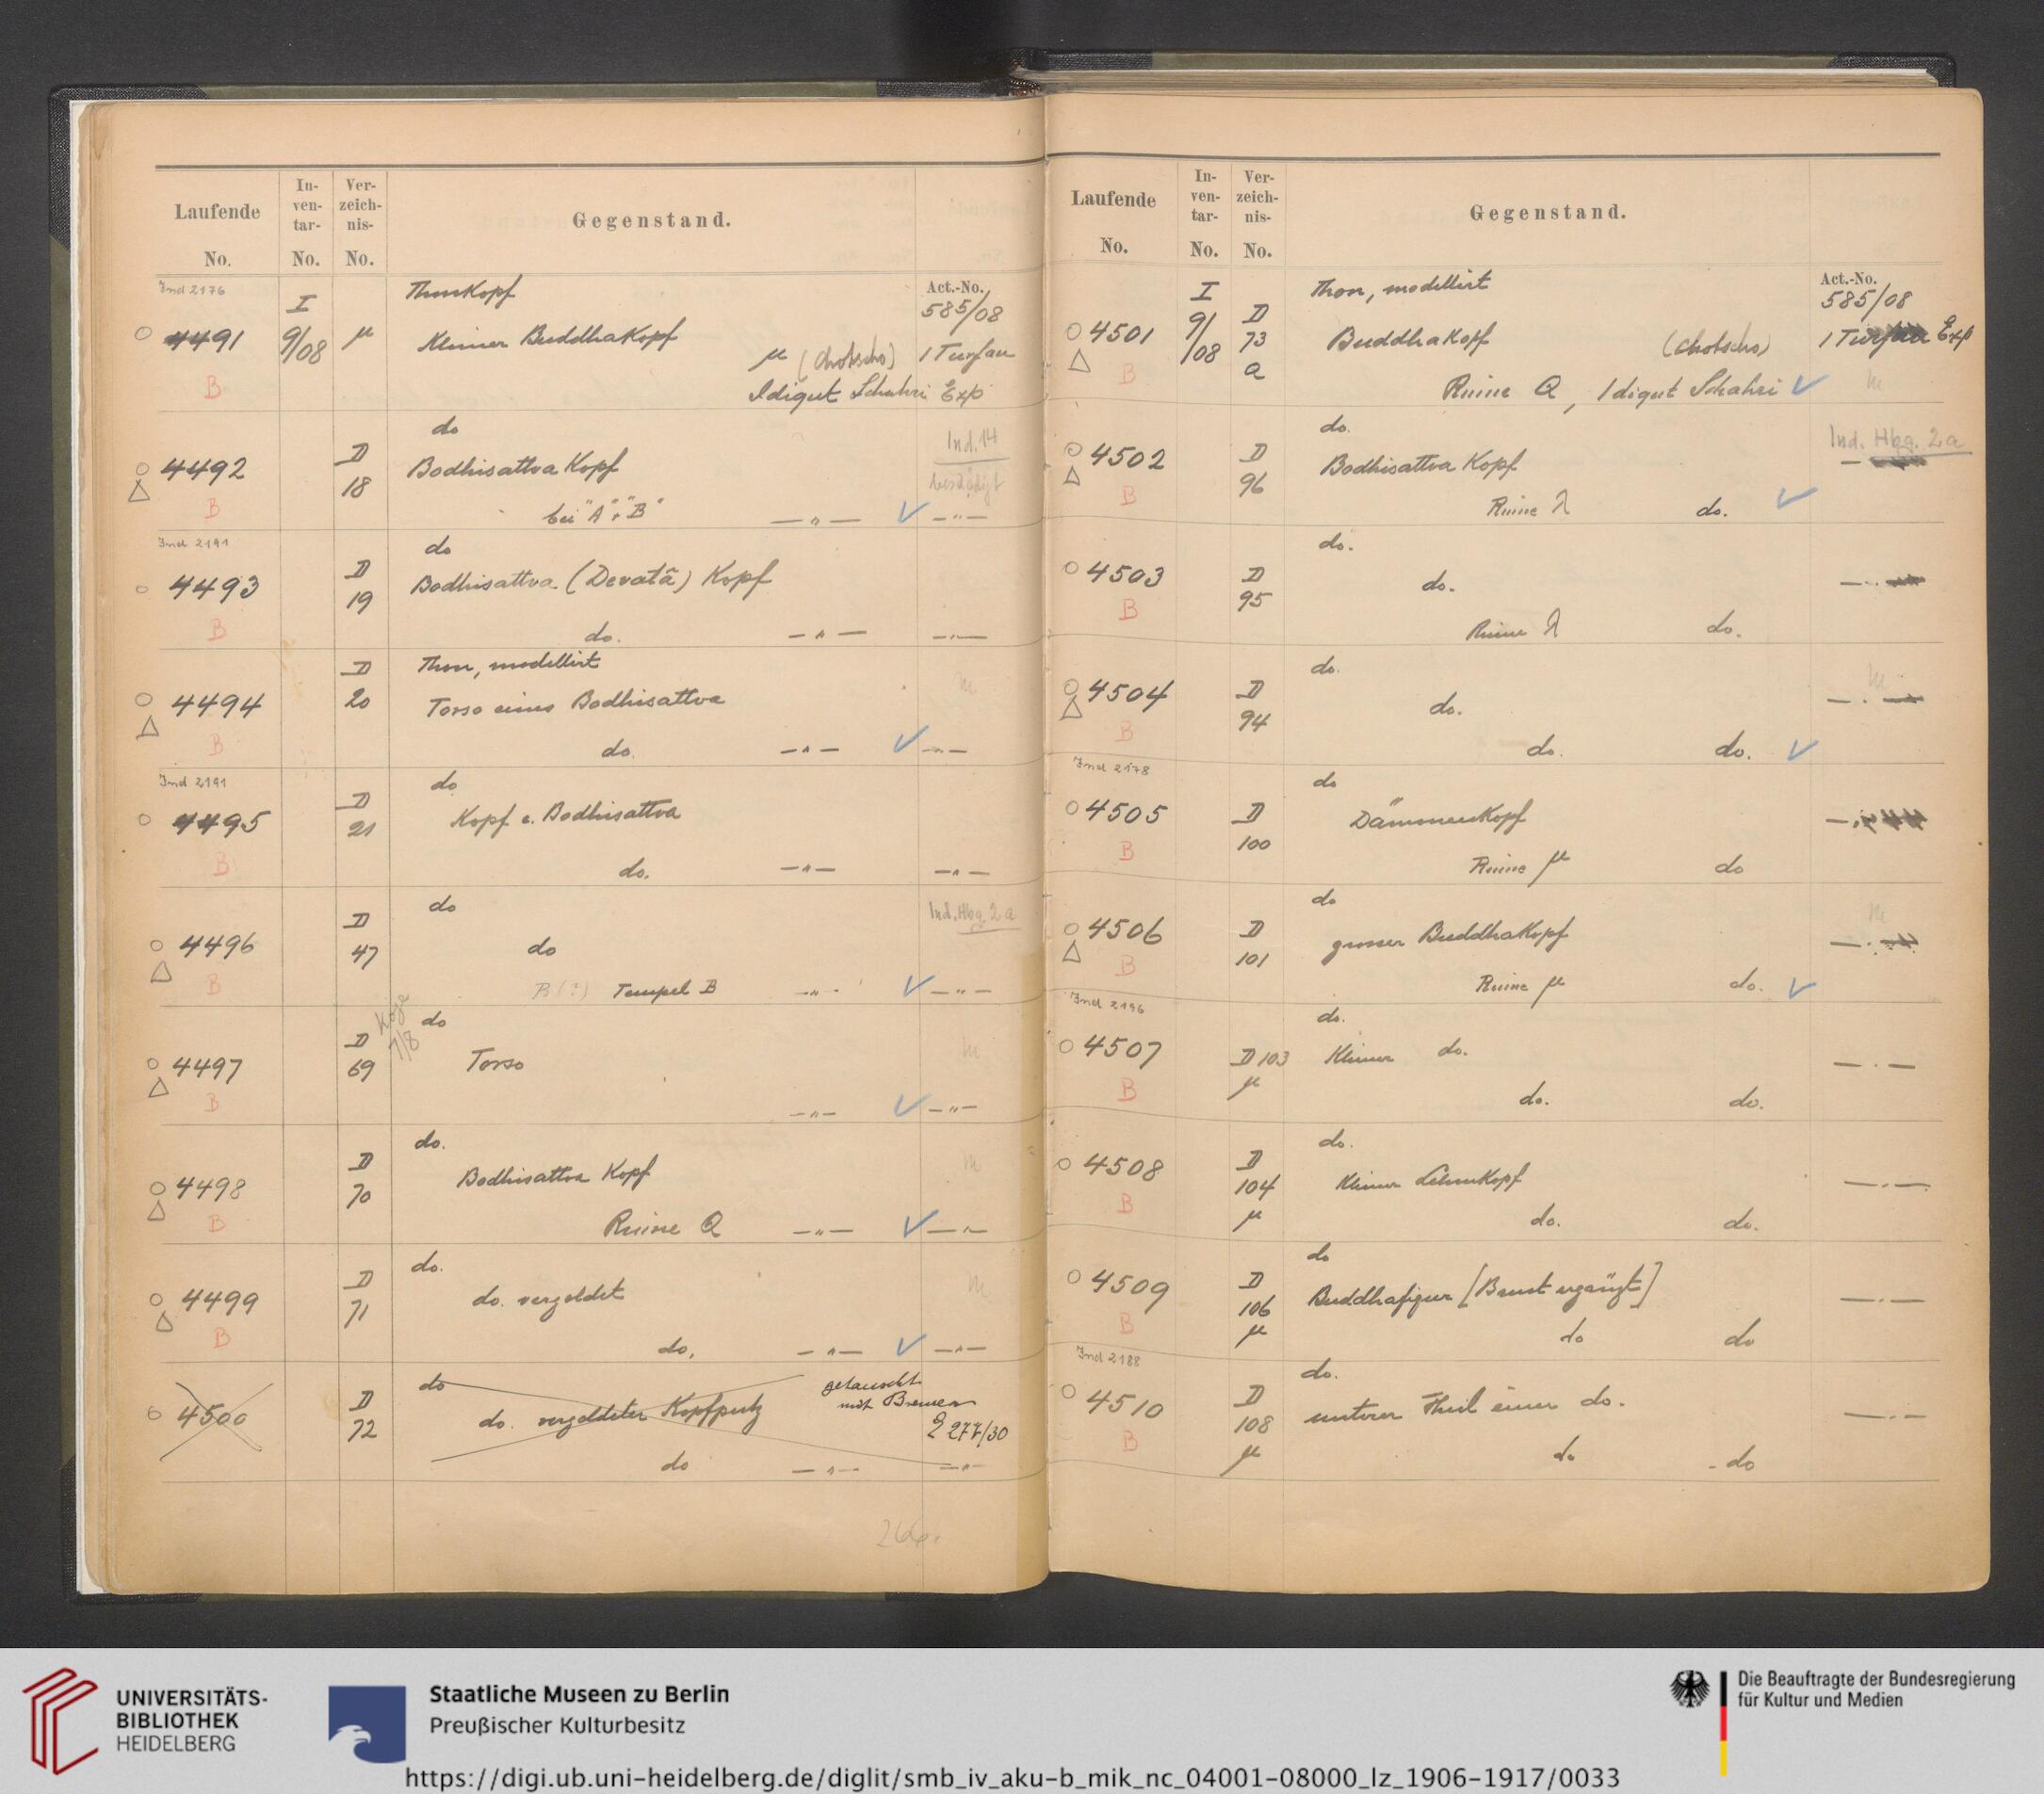 Laufende
No.
In-
ven-
tar-
No.
Ver-
zeich-
nis-
No.
Gegenstand.
Act.-No.
585/08
Ind 2176
4491
B
I
9/08
µ
Thonkopf
Kleiner Buddhakopf
µ (Chotscho) I Turfan
Idigut Schahri Exp
4492
B
D
18
do
Bodhisattva Kopf
bei "A" + "B" — " — — " —
Ind. 14
beschädigt
Ind 2191
4493
B
D
19
do
Bodhisattva (Devatâ) Kopf
do. — " — — " —
4494
B
D
20
Thon, modellirt
Torso eines Bodhisattva
do. — " — — " —
Ind 2191
4495
B
D
21
do
Kopf e. Bodhisattva
do. — " — — " —
4496
B
D
47
do
do
Ind. Hbg. 2a
B (?) Tempel B — " — — " —
4497
B
D
69
7/8
do
Torso
— " — — " —
4498
B
D
70
do.
Bodhisattva Kopf
Ruine Q — " — — " —
4499
B
D
71
do.
do. vergoldet
do. — " — — " —
4500
D
72
do
do. vergoldeter Kopfputz
getauscht
mit Bremen
E 277/30
do — " — — " —
Laufende
No.
In-
ven-
tar-
No.
Ver-
zeich-
nis-
No.
Gegenstand.
Act.-No.
585/08
4501
B
I
9/
/08
D
73
a
Thon, modellirt
Buddhakopf (Chotscho) I Turfan Exp
Ruine Q, Idigut Schahri
4502
B
D
96
do.
Bodhisattva Kopf
Ind. Hbg. 2a
Ruine λ do.
4503
B
D
95
do.
do.
Ruine λ do.
4504
B
D
94
do.
do.
do. do.
Ind 2178
4505
B
D
100
do
Dämonenkopf
Ruine µ do
4506
B
D
101
do
grosser Buddhakopf
Ruine µ do.
Ind 2196
4507
B
D 103
µ
do.
Kleiner do. — . —
do. do.
4508
B
D
104
µ
do.
Kleiner Lehmkopf — . —
do. do.
4509
B
D
106
µ
do
Buddhafigur [Brust ergänzt] — . —
do do
Ind 2188
4510
B
D
108
µ
do.
unterer Theil einer do. — . —
do - do
UNIVERSITÄTS-
BIBLIOTHEK
HEIDELBERG
Staatliche Museen zu Berlin
Preußischer Kulturbesitz
Die Beauftragte der Bundesregierung
für Kultur und Medien
https://digi.ub.uni-heidelberg.de/diglit/smb_iv_aku-b_mik_nc_04001-08000_lz_1906-1917/0033